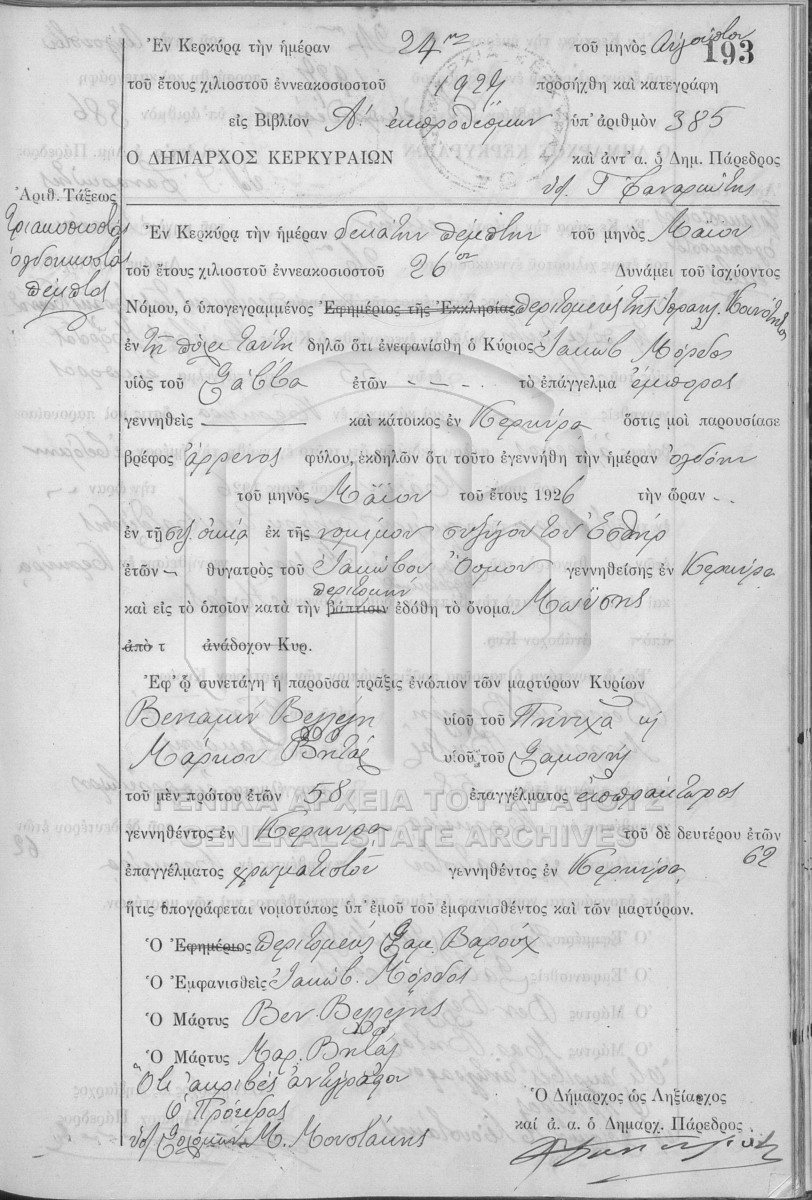 193
Ἐν Κερκύρᾳ τὴν ἡμέραν 24ην τοῦ μηνὸς Αὐγούστου
τοῦ ἔτους χιλιοστοῦ ἐννεακοσιοστοῦ 1927 προσήχθη καὶ κατεγράφη
εἰς Βιβλίον Α' ἐκπροθέσμων ὑπ' ἀριθμὸν 385
Ο ΔΗΜΑΡΧΟΣ ΚΕΡΚΥΡΑΙΩΝ καὶ ἀντ' α. ὁ Δημ. Πάρεδρος
Ἀριθ. Τάξεως
Τριακοσιοστὸς
ὀγδοηκοστὸς
πέμπτος
Ἐν Κερκύρᾳ τὴν ἡμέραν δεκάτην πέμπτην τοῦ μηνὸς Μαΐου
τοῦ ἔτους χιλιοστοῦ ἐννεακοσιοστοῦ 26ου Δυνάμει τοῦ ἰσχύοντος
Νόμου, ὁ ὑπογεγραμμένος Ἐφημέριος τῆς Ἐκκλησίας περιτομεὺς τῆς Ἰσραηλ. Κοινότητος
ἐν τῇ πόλει ταύτῃ δηλῶ ὅτι ἐνεφανίσθη ὁ Κύριος Ἰακὼβ Μόρδος
υἱὸς τοῦ Σάββα ἐτῶν - - - - τὸ ἐπάγγελμα ἔμπορος
γεννηθεὶς — καὶ κάτοικος ἐν Κερκύρᾳ ὅστις μοὶ παρουσίασε
βρέφος ἄρρενος φύλου, ἐκδηλῶν ὅτι τοῦτο ἐγεννήθη τὴν ἡμέραν ὀγδόην
τοῦ μηνὸς Μαΐου τοῦ ἔτους 1926 τὴν ὥραν - -
ἐν τῇ συζ. οἰκίᾳ ἐκ τῆς νομίμου συζύγου του Ἐσθὴρ
ἐτῶν - θυγατρὸς τοῦ Ἰακώβου Ὄσμου γεννηθείσης ἐν Κερκύρᾳ
περιτομὴν
καὶ εἰς τὸ ὁποῖον κατὰ τὴν βάπτισιν ἐδόθη τὸ ὄνομα Μωϋσῆς
ἀπὸ τ ἀνάδοχον Κυρ.
Ἐφ' ᾧ συνετάγη ἡ παροῦσα πρᾶξις ἐνώπιον τῶν μαρτύρων Κυρίων
Βενιαμὶν Βελλέλη υἱοῦ τοῦ Πινχὰ κ
Μάρκου Βιτάλ υἱοῦ τοῦ Σαμουὴλ
τοῦ μὲν πρώτου ἐτῶν 58 ἐπαγγέλματος εἰσπράκτορος
ΓΕΝΙΚΑ ΑΡΧΕΙΑ ΤΟΥ ΚΡΑΤΟΥΣ
γεννηθέντος ἐν Κερκύρᾳ τοῦ δὲ δευτέρου ἐτῶν 62
GENERAL STATE ARCHIVES
ἐπαγγέλματος χρωματιστοῦ γεννηθέντος ἐν Κερκύρᾳ
ἥτις ὑπογράφεται νομοτύπως ὑπ' ἐμοῦ τοῦ ἐμφανισθέντος καὶ τῶν μαρτύρων.
Ὁ Ἐφημέριος περιτομεὺς Σαμ. Βαροὺχ
Ὁ Ἐμφανισθεὶς Ἰακώβ. Μόρδος
Ὁ Μάρτυς Βεν Βελλέλης
Ὁ Μάρτυς Μαρ. Βιτάλ
Ὅτι ἀκριβὲς ἀντίγραφον
Ὁ Πρόεδρος
Μ. Μουστάκης
Ὁ Δήμαρχος ὡς Ληξίαρχος
καὶ ἀ. α. ὁ Δημαρχ. Πάρεδρος